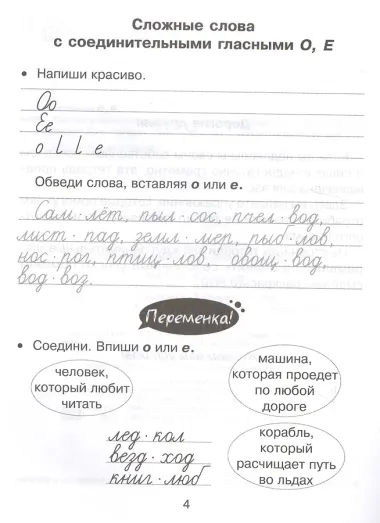 Сложные слова
с соединительными гласными О, Е
• Напиши красиво.
Оо
Ее
о l l е
Обведи слова, вставляя о или е.
Сам·лёт, пыл·сос, пчел·вод,
лист·пад, земл·мер, рыб·лов,
нос·рог, птиц·лов, овощ·вод,
вод·воз.
Переменка!
• Соедини. Впиши о или е.
человек,
который любит
читать
машина,
которая проедет
по любой
дороге
лед·кол
везд·ход
книг·люб
корабль,
который
расчищает путь
во льдах
4